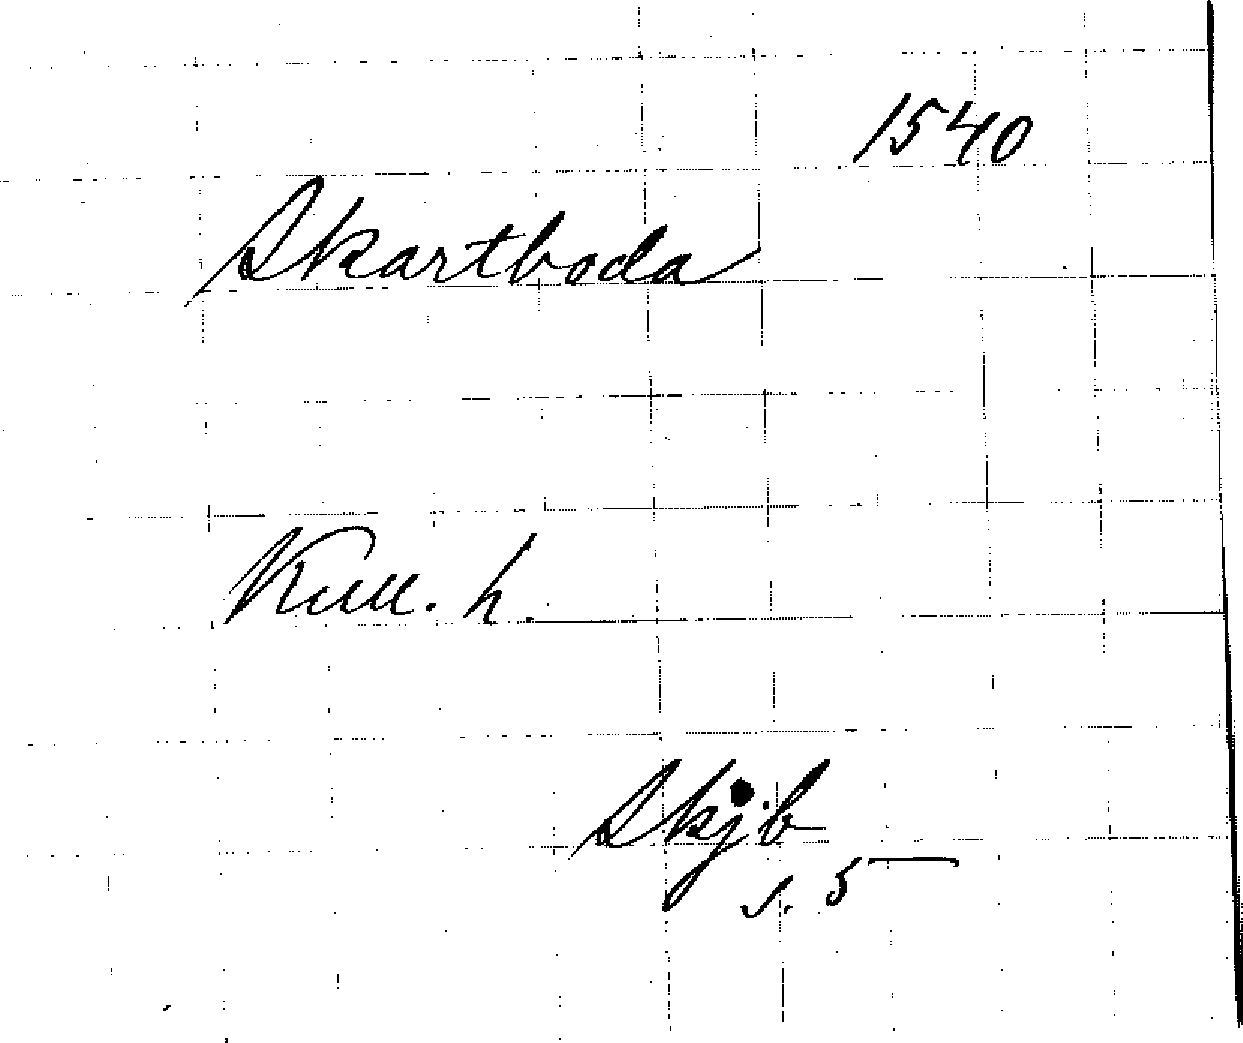 1540
Skartboda
Kull. h.
Skjb
s. 5